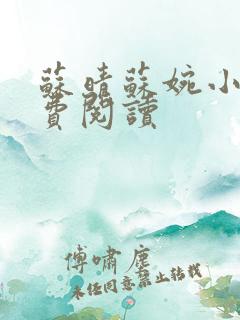 蘇晴蘇婉小
費閱讀
傅嘯塵
未經同意禁止轉載